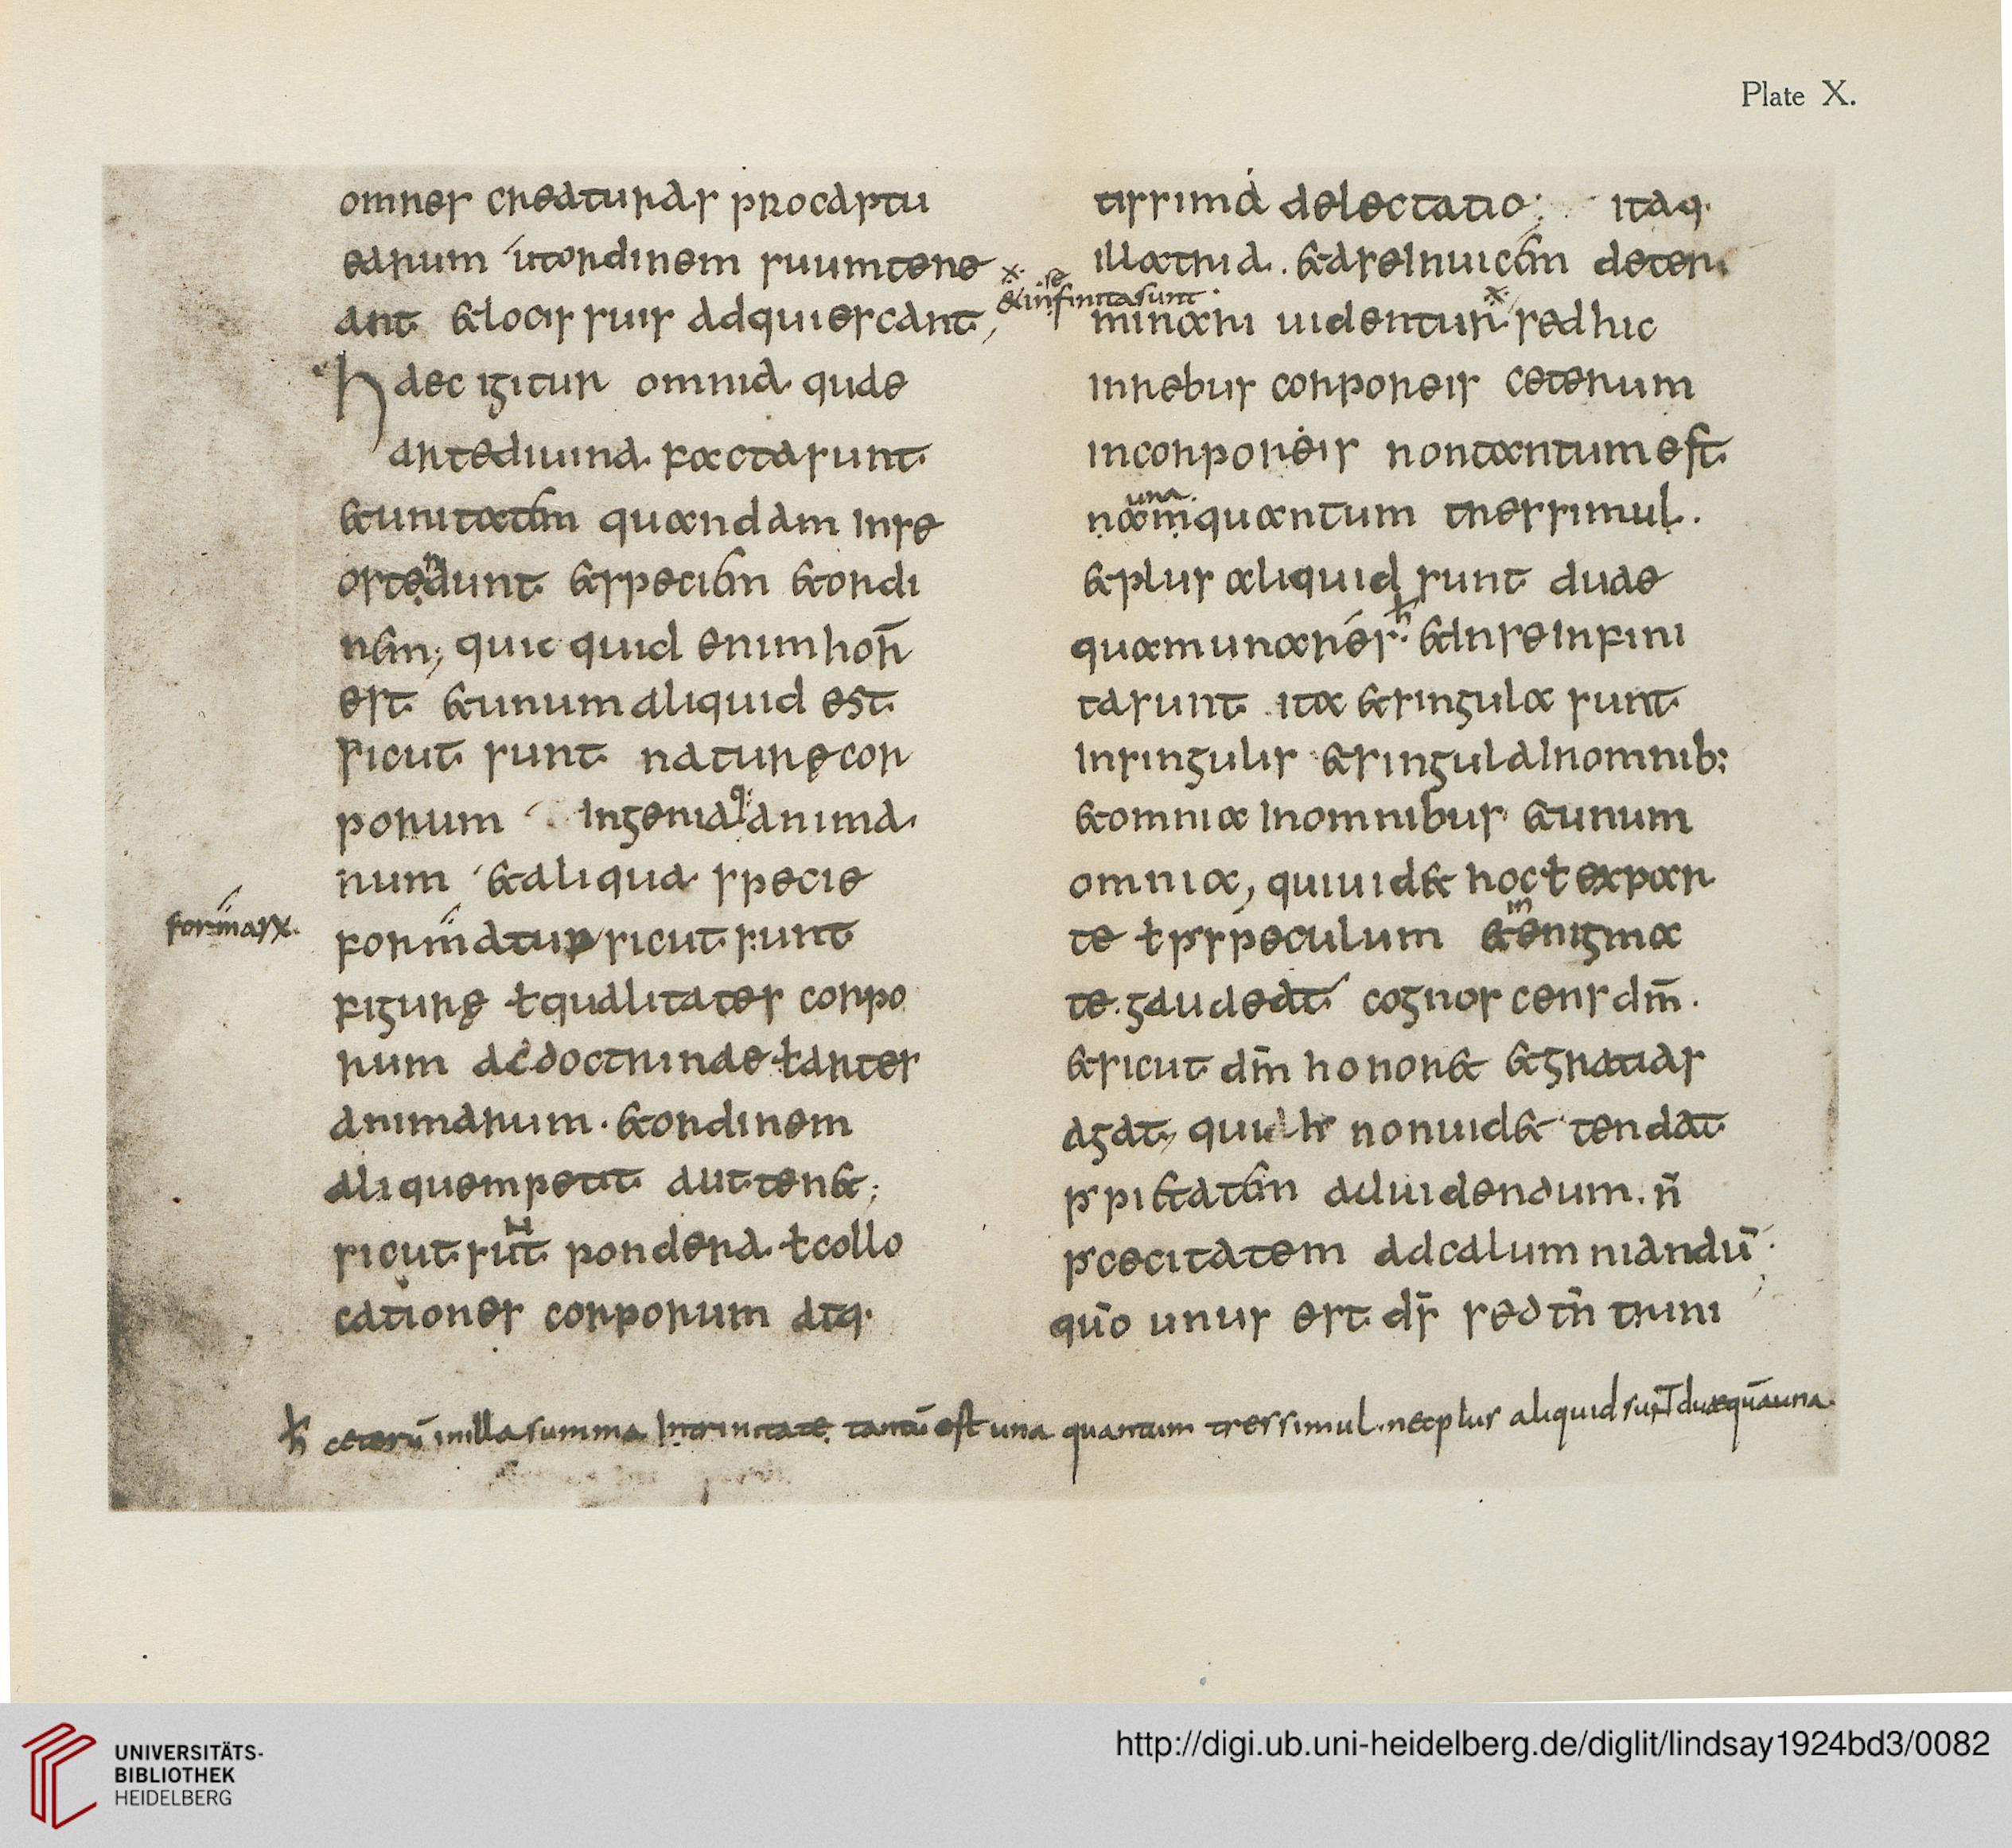 Plate X.
omnes creaturas procaptu
earum utordinem suumtene
ant &locis suis adquiescant,
haec igitur omnia quae
artediuina factasunt
&unitatem quandam inse
ostendunt &speciem &ordi
nem; quic quid enim horū
est &unumaliquid est
sicut sunt naturęcor
porum ingeniaq: anima
rum &aliqua specie
formatur sicut sunt
formasx.
figurę ł qualitates corpo
rum acdoctrinae ł artes
animarum. &ordinem
aliquempetit auttenet;
sicut sunt pondera ł collo
cationes corporum atq.
x. &inse finitasunt
tissima delectatio; itaq.
illatria. &aseinuicem deter
minari uidentur x. sedhic
inrebus corporeis ceterum
incorporeis nontantumest
nam una quantum tressimul.
&plus aliquid sunt duae
quamunares. ħ &inseinfini
tasunt ita &singula sunt
insingulis &singulainomnib;
&omnia inomnibus &unum
omnia, quiuid& hoc ł expar
te ł p speculum & in enigma
te. gaudeat cognoscens dm̄.
&sicut dm̄ honor& &gratias
agat, quih nonuid& tendat
p pi&atem aduidendum. n̄
p cecitatem adcalumniandū.
quō unus est ds̄ sed tn̄ trini
ħ ceterū inilla summa Intrinitate tantū est una quantum tres simul. necplus aliquid sunt duæ quā una.
UNIVERSITÄTS-
BIBLIOTHEK
HEIDELBERG
http://digi.ub.uni-heidelberg.de/diglit/lindsay1924bd3/0082